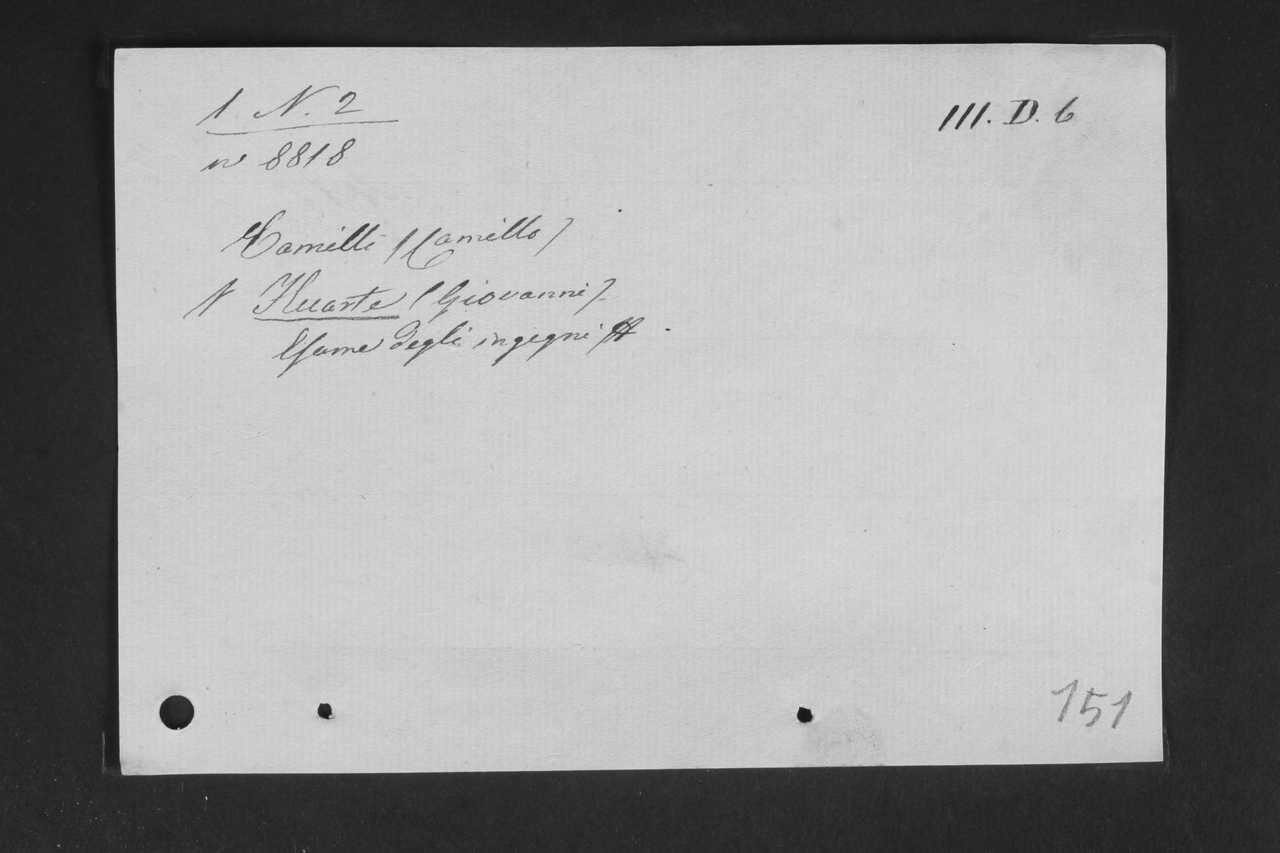 1. N. 2
III. D. 6
nº 8818
Camilli (Camillo)
V Huarte (Giovanni)
Esame degli ingegni
151